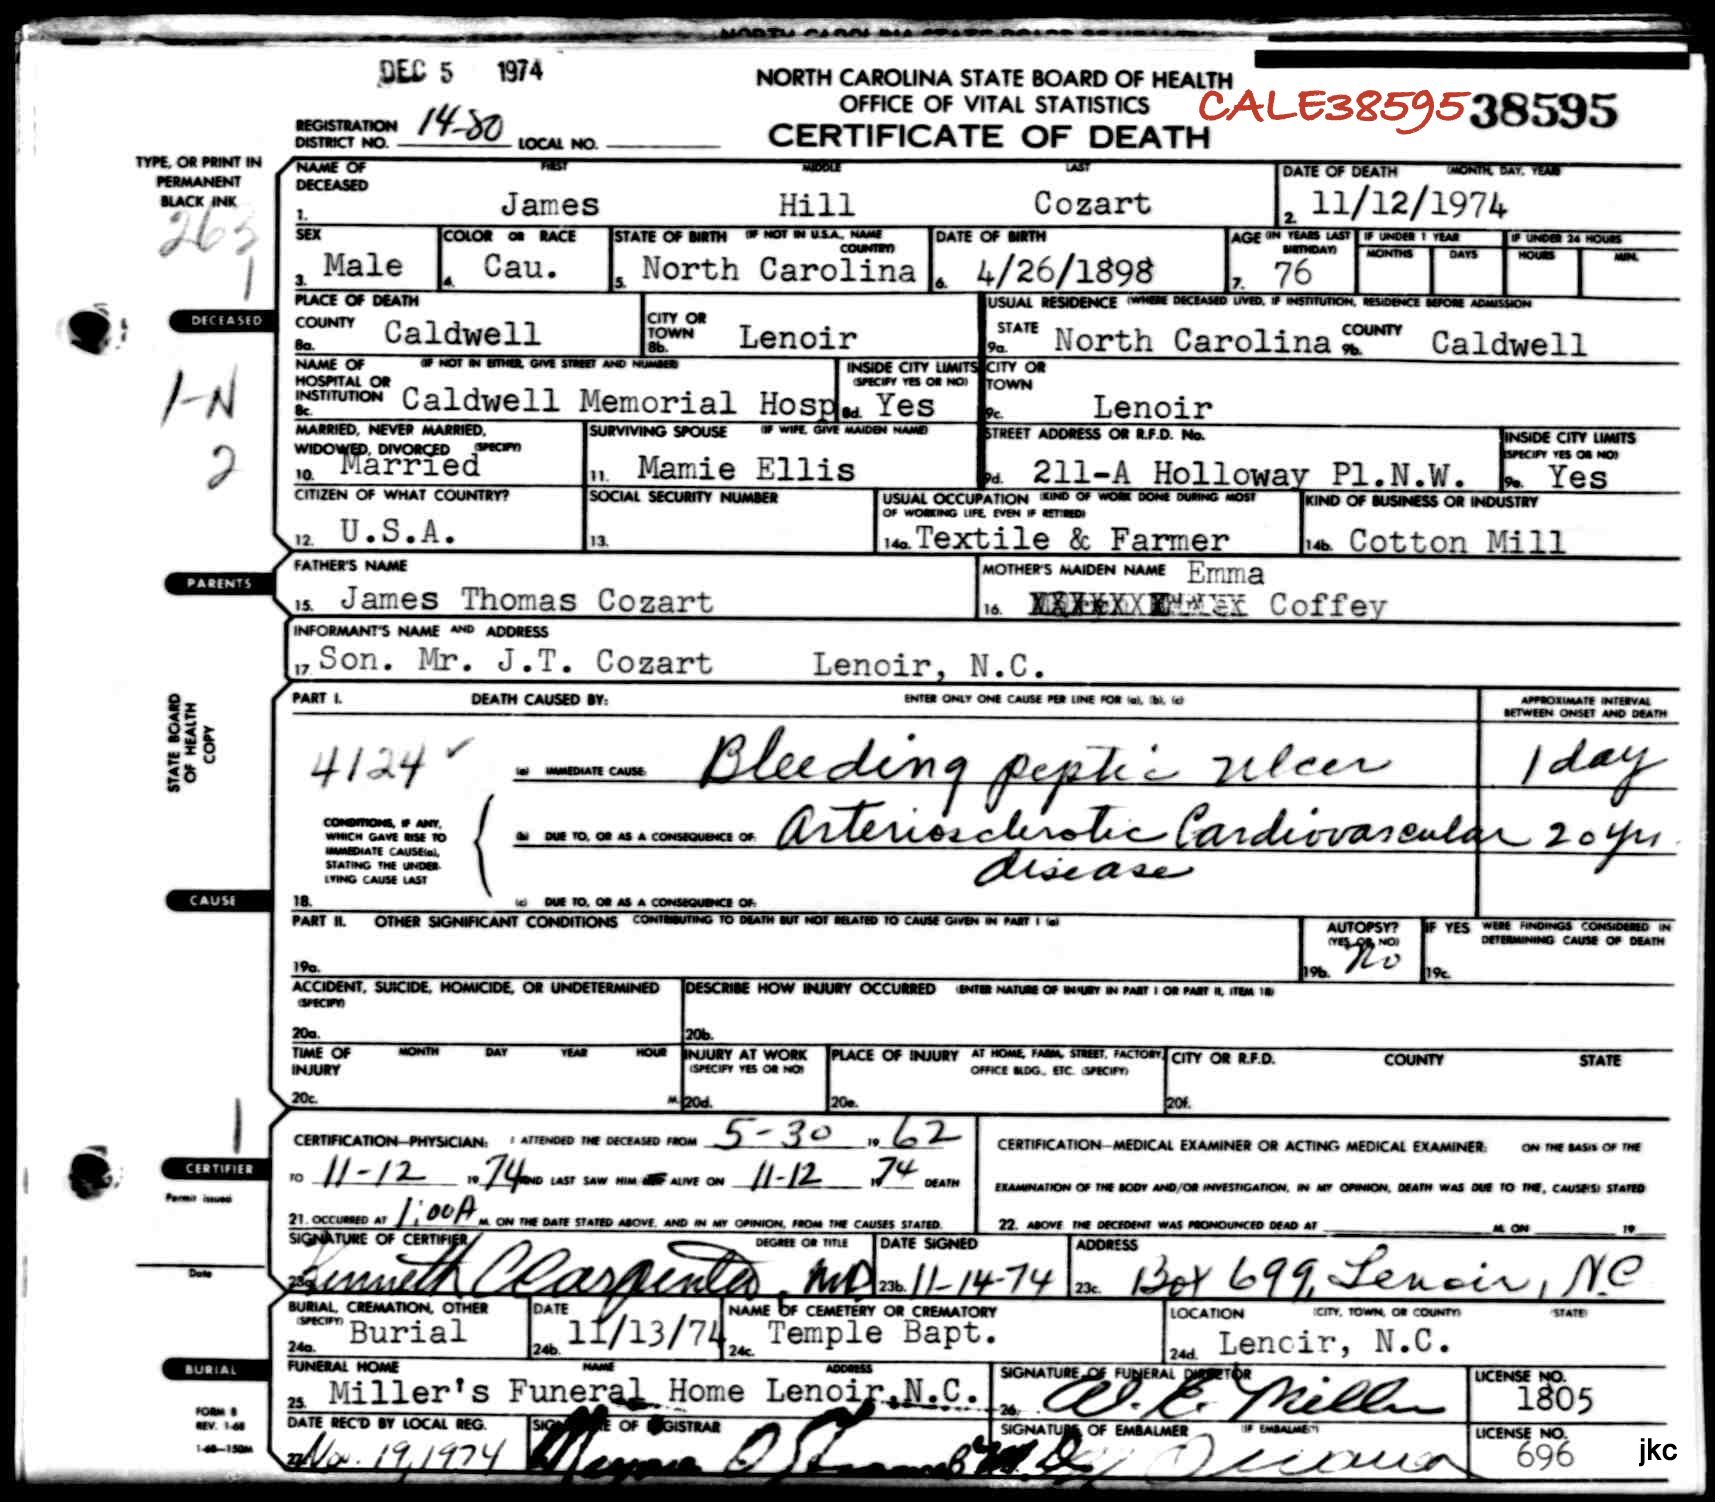 NORTH CAROLINA STATE BOARD OF HEALTH
DEC 5 1974
NORTH CAROLINA STATE BOARD OF HEALTH
OFFICE OF VITAL STATISTICS CALE38595 38595
CERTIFICATE OF DEATH
REGISTRATION DISTRICT NO. 14-80 LOCAL NO.
TYPE, OR PRINT IN
PERMANENT
BLACK INK
263
1
DECEASED
1-N
2
NAME OF DECEASED FIRST MIDDLE LAST DATE OF DEATH (MONTH, DAY, YEAR)
1. James Hill Cozart 2. 11/12/1974
SEX COLOR OR RACE STATE OF BIRTH (IF NOT IN U.S.A., NAME COUNTRY) DATE OF BIRTH AGE (IN YEARS LAST BIRTHDAY) IF UNDER 1 YEAR MONTHS DAYS IF UNDER 24 HOURS HOURS MIN.
3. Male 4. Cau. 5. North Carolina 6. 4/26/1898 7. 76
PLACE OF DEATH USUAL RESIDENCE (WHERE DECEASED LIVED, IF INSTITUTION, RESIDENCE BEFORE ADMISSION
COUNTY 8a. Caldwell CITY OR TOWN 8b. Lenoir STATE 9a. North Carolina COUNTY 9b. Caldwell
NAME OF HOSPITAL OR INSTITUTION (IF NOT IN EITHER, GIVE STREET AND NUMBER) INSIDE CITY LIMITS (SPECIFY YES OR NO) CITY OR TOWN
8c. Caldwell Memorial Hosp 8d. Yes 9c. Lenoir
MARRIED, NEVER MARRIED, WIDOWED, DIVORCED (SPECIFY) SURVIVING SPOUSE (IF WIFE, GIVE MAIDEN NAME) STREET ADDRESS OR R.F.D. No. INSIDE CITY LIMITS (SPECIFY YES OR NO)
10. Married 11. Mamie Ellis 9d. 211-A Holloway Pl.N.W. 9e. Yes
CITIZEN OF WHAT COUNTRY? SOCIAL SECURITY NUMBER USUAL OCCUPATION (KIND OF WORK DONE DURING MOST OF WORKING LIFE, EVEN IF RETIRED) KIND OF BUSINESS OR INDUSTRY
12. U.S.A. 13. 14a. Textile & Farmer 14b. Cotton Mill
PARENTS
FATHER'S NAME MOTHER'S MAIDEN NAME Emma
15. James Thomas Cozart 16. Coffey
INFORMANT'S NAME AND ADDRESS
17. Son. Mr. J.T. Cozart Lenoir, N.C.
STATE BOARD OF HEALTH COPY
PART I. DEATH CAUSED BY: ENTER ONLY ONE CAUSE PER LINE FOR (a), (b), (c) APPROXIMATE INTERVAL BETWEEN ONSET AND DEATH
4124 ✓ (a) IMMEDIATE CAUSE: Bleeding peptic ulcer 1 day
CONDITIONS, IF ANY, WHICH GAVE RISE TO IMMEDIATE CAUSE(a), STATING THE UNDERLYING CAUSE LAST
(b) DUE TO, OR AS A CONSEQUENCE OF: Arteriosclerotic Cardiovascular 20 yrs.
disease
CAUSE
18. (c) DUE TO, OR AS A CONSEQUENCE OF:
PART II. OTHER SIGNIFICANT CONDITIONS CONTRIBUTING TO DEATH BUT NOT RELATED TO CAUSE GIVEN IN PART I (a) AUTOPSY? (YES OR NO) IF YES WERE FINDINGS CONSIDERED IN DETERMINING CAUSE OF DEATH
19a. 19b. No 19c.
ACCIDENT, SUICIDE, HOMICIDE, OR UNDETERMINED (SPECIFY) DESCRIBE HOW INJURY OCCURRED (ENTER NATURE OF INJURY IN PART I OR PART II, ITEM 18)
20a. 20b.
TIME OF INJURY MONTH DAY YEAR HOUR INJURY AT WORK (SPECIFY YES OR NO) PLACE OF INJURY AT HOME, FARM, STREET, FACTORY, OFFICE BLDG., ETC. (SPECIFY) CITY OR R.F.D. COUNTY STATE
20c. M. 20d. 20e. 20f.
1
CERTIFIER
Permit issued
Date
CERTIFICATION—PHYSICIAN: I ATTENDED THE DECEASED FROM 5-30 19 62
TO 11-12 19 74 AND LAST SAW HIM ALIVE ON 11-12 19 74 DEATH
21. OCCURRED AT 1:00A M. ON THE DATE STATED ABOVE, AND IN MY OPINION, FROM THE CAUSES STATED.
CERTIFICATION—MEDICAL EXAMINER OR ACTING MEDICAL EXAMINER: ON THE BASIS OF THE
EXAMINATION OF THE BODY AND/OR INVESTIGATION, IN MY OPINION, DEATH WAS DUE TO THE, CAUSE(S) STATED
22. ABOVE. THE DECEDENT WAS PRONOUNCED DEAD AT M. ON 19
SIGNATURE OF CERTIFIER DEGREE OR TITLE DATE SIGNED ADDRESS
23a. Kenneth C Carpenter, MD 23b. 11-14-74 23c. Box 699, Lenoir, N.C
BURIAL, CREMATION, OTHER (SPECIFY) DATE NAME OF CEMETERY OR CREMATORY LOCATION (CITY, TOWN, OR COUNTY) (STATE)
24a. Burial 24b. 11/13/74 24c. Temple Bapt. 24d. Lenoir, N.C.
BURIAL
FUNERAL HOME NAME ADDRESS SIGNATURE OF FUNERAL DIRECTOR LICENSE NO.
25. Miller's Funeral Home Lenoir, N.C. 26. W. E. Miller 1805
FORM 8
REV. 1-68
1-68—150M
DATE REC'D BY LOCAL REG. SIGNATURE OF REGISTRAR SIGNATURE OF EMBALMER (IF EMBALMED) LICENSE NO.
27. Nov. 19, 1974 696
jkc